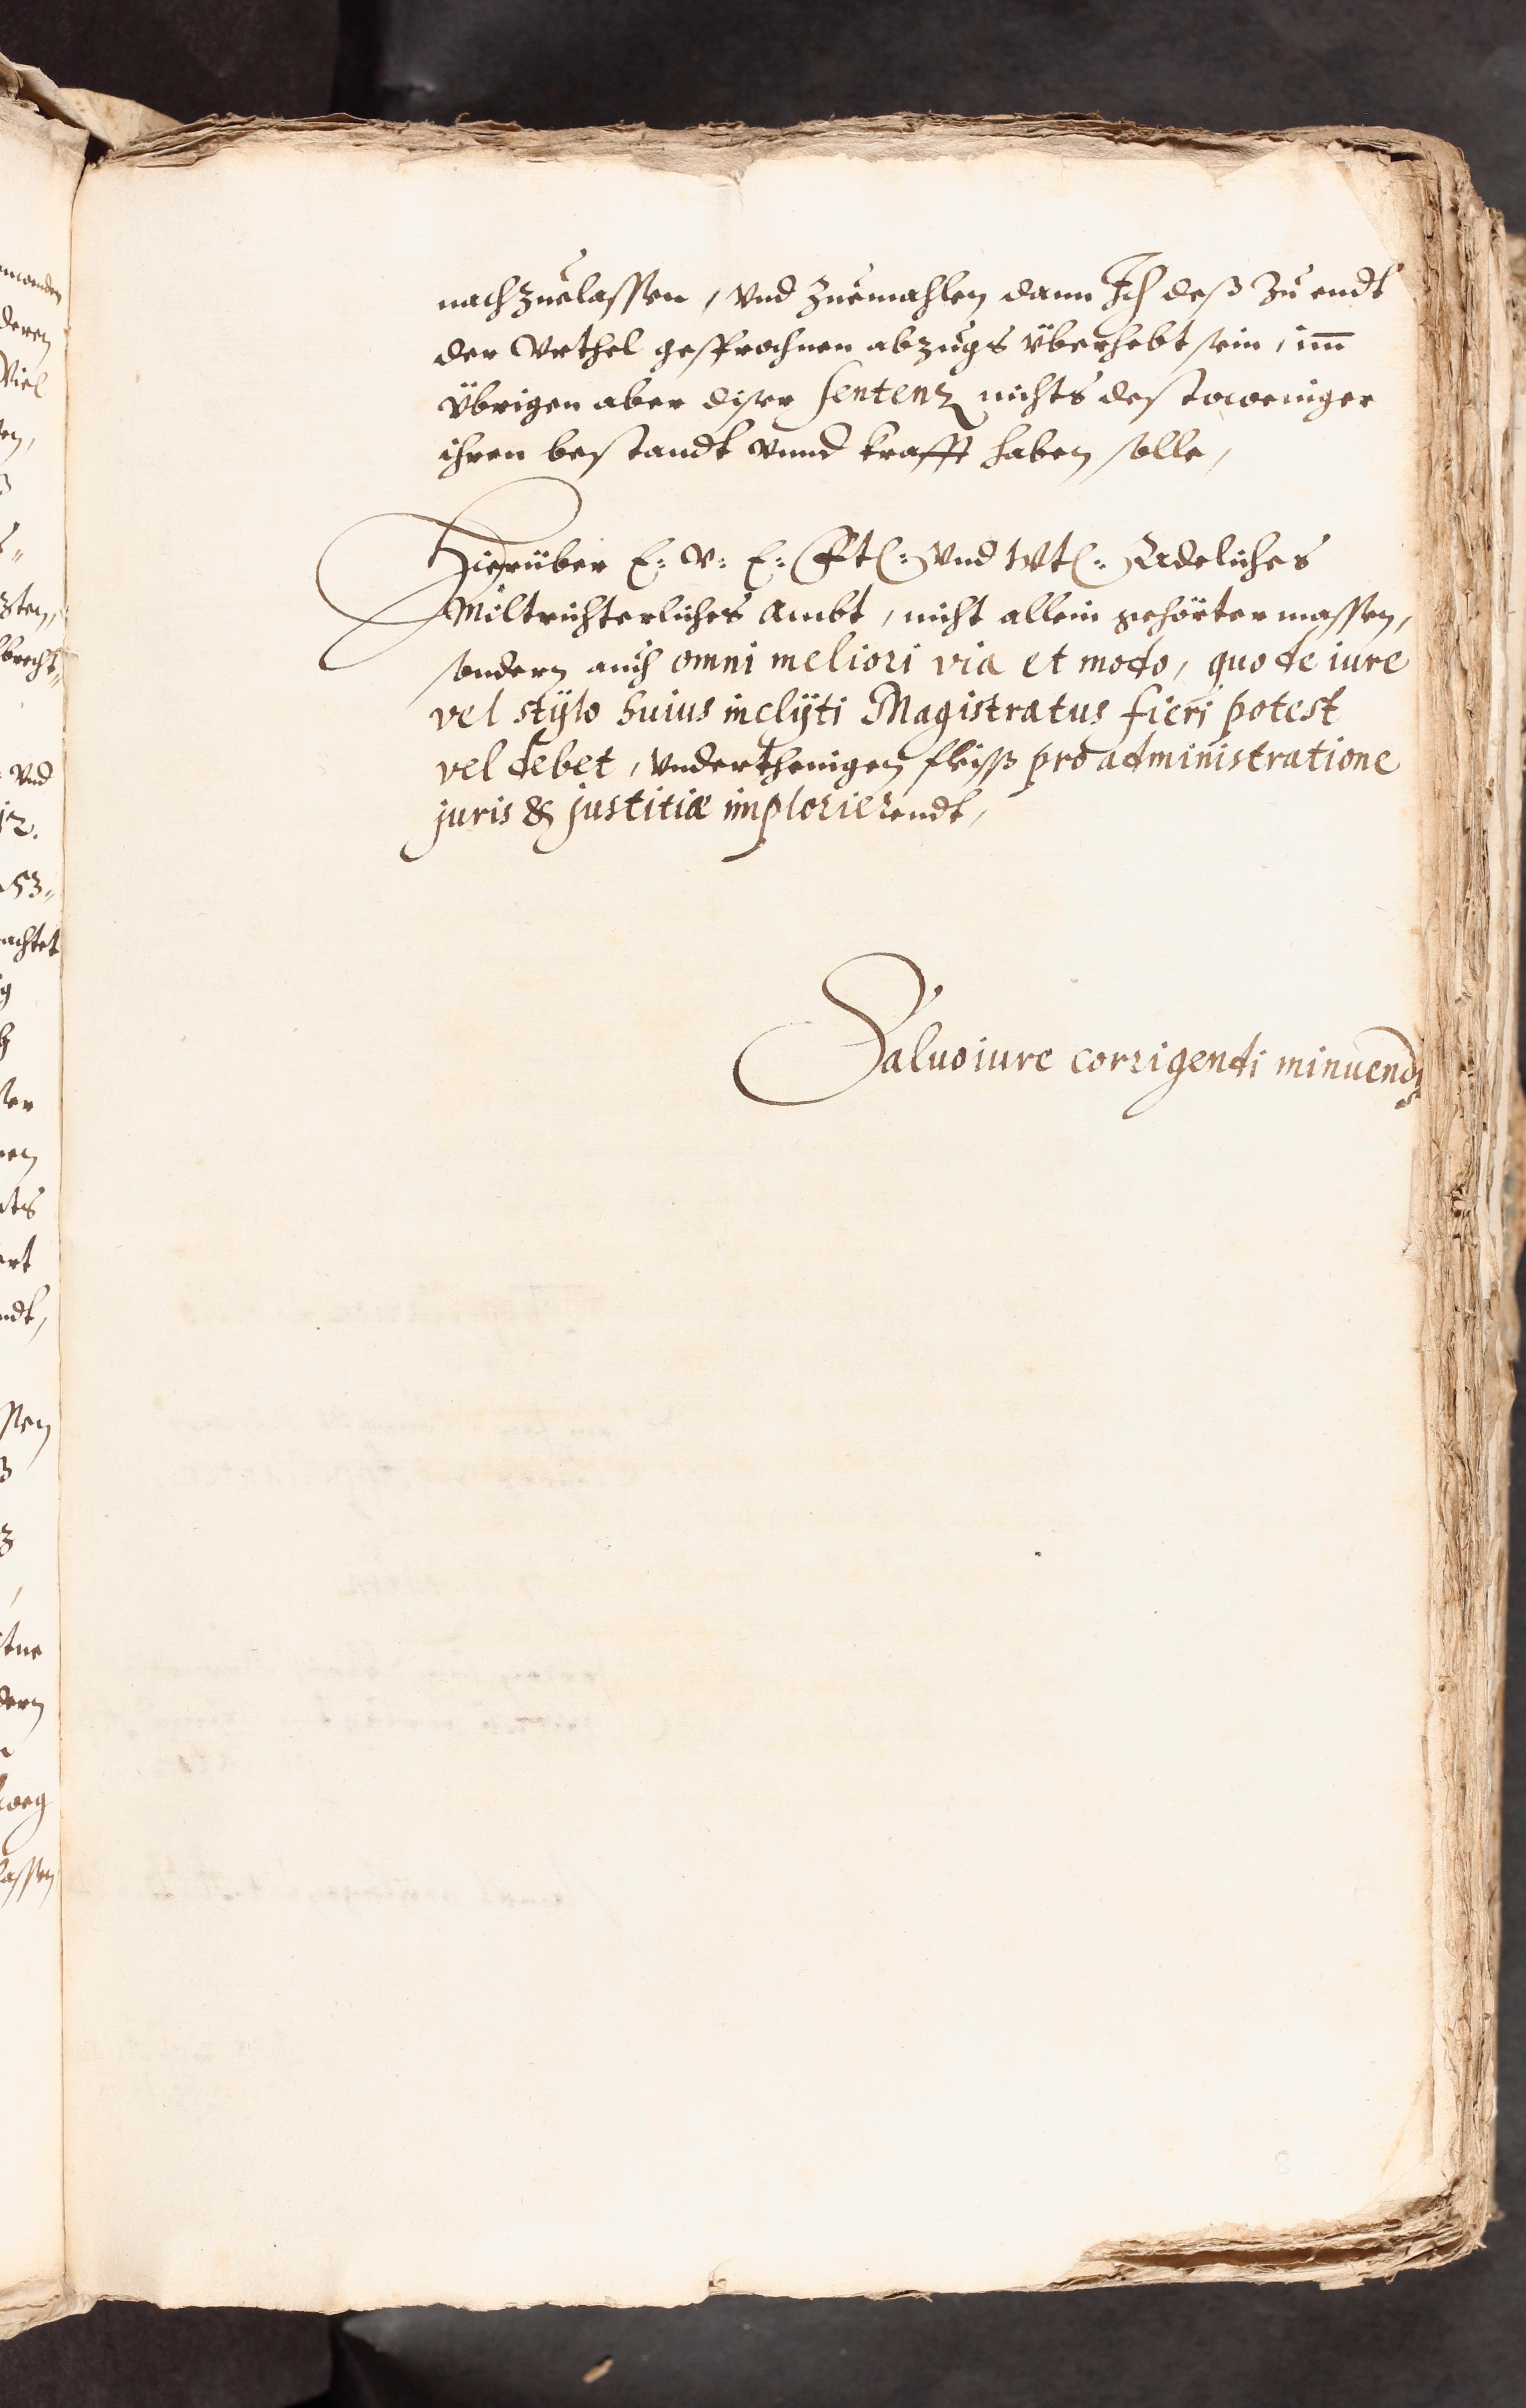 nachzuelassen, vnd zuemahlen dann Ich deß zu endt
der Vrthel gesprochnen abzugs überhebt sein, im̅
übrigen aber diser sentenz nichts destoweniger
ihren bestandt vnnd krafft haben solle,
Hierüber E: V: E: Ft: vnd Wt: Adeliches
Miltrichterliches Ambt, nicht allein gehörter massen,
sondern auch omni meliori via et modo, quo de iure
vel stÿlo huius inclÿti Magistratus fieri potest
vel debet, vnderthenigen fleiss pro administratione
juris & justitiæ implorierendt,
Saluo iure corrigendi minuendi